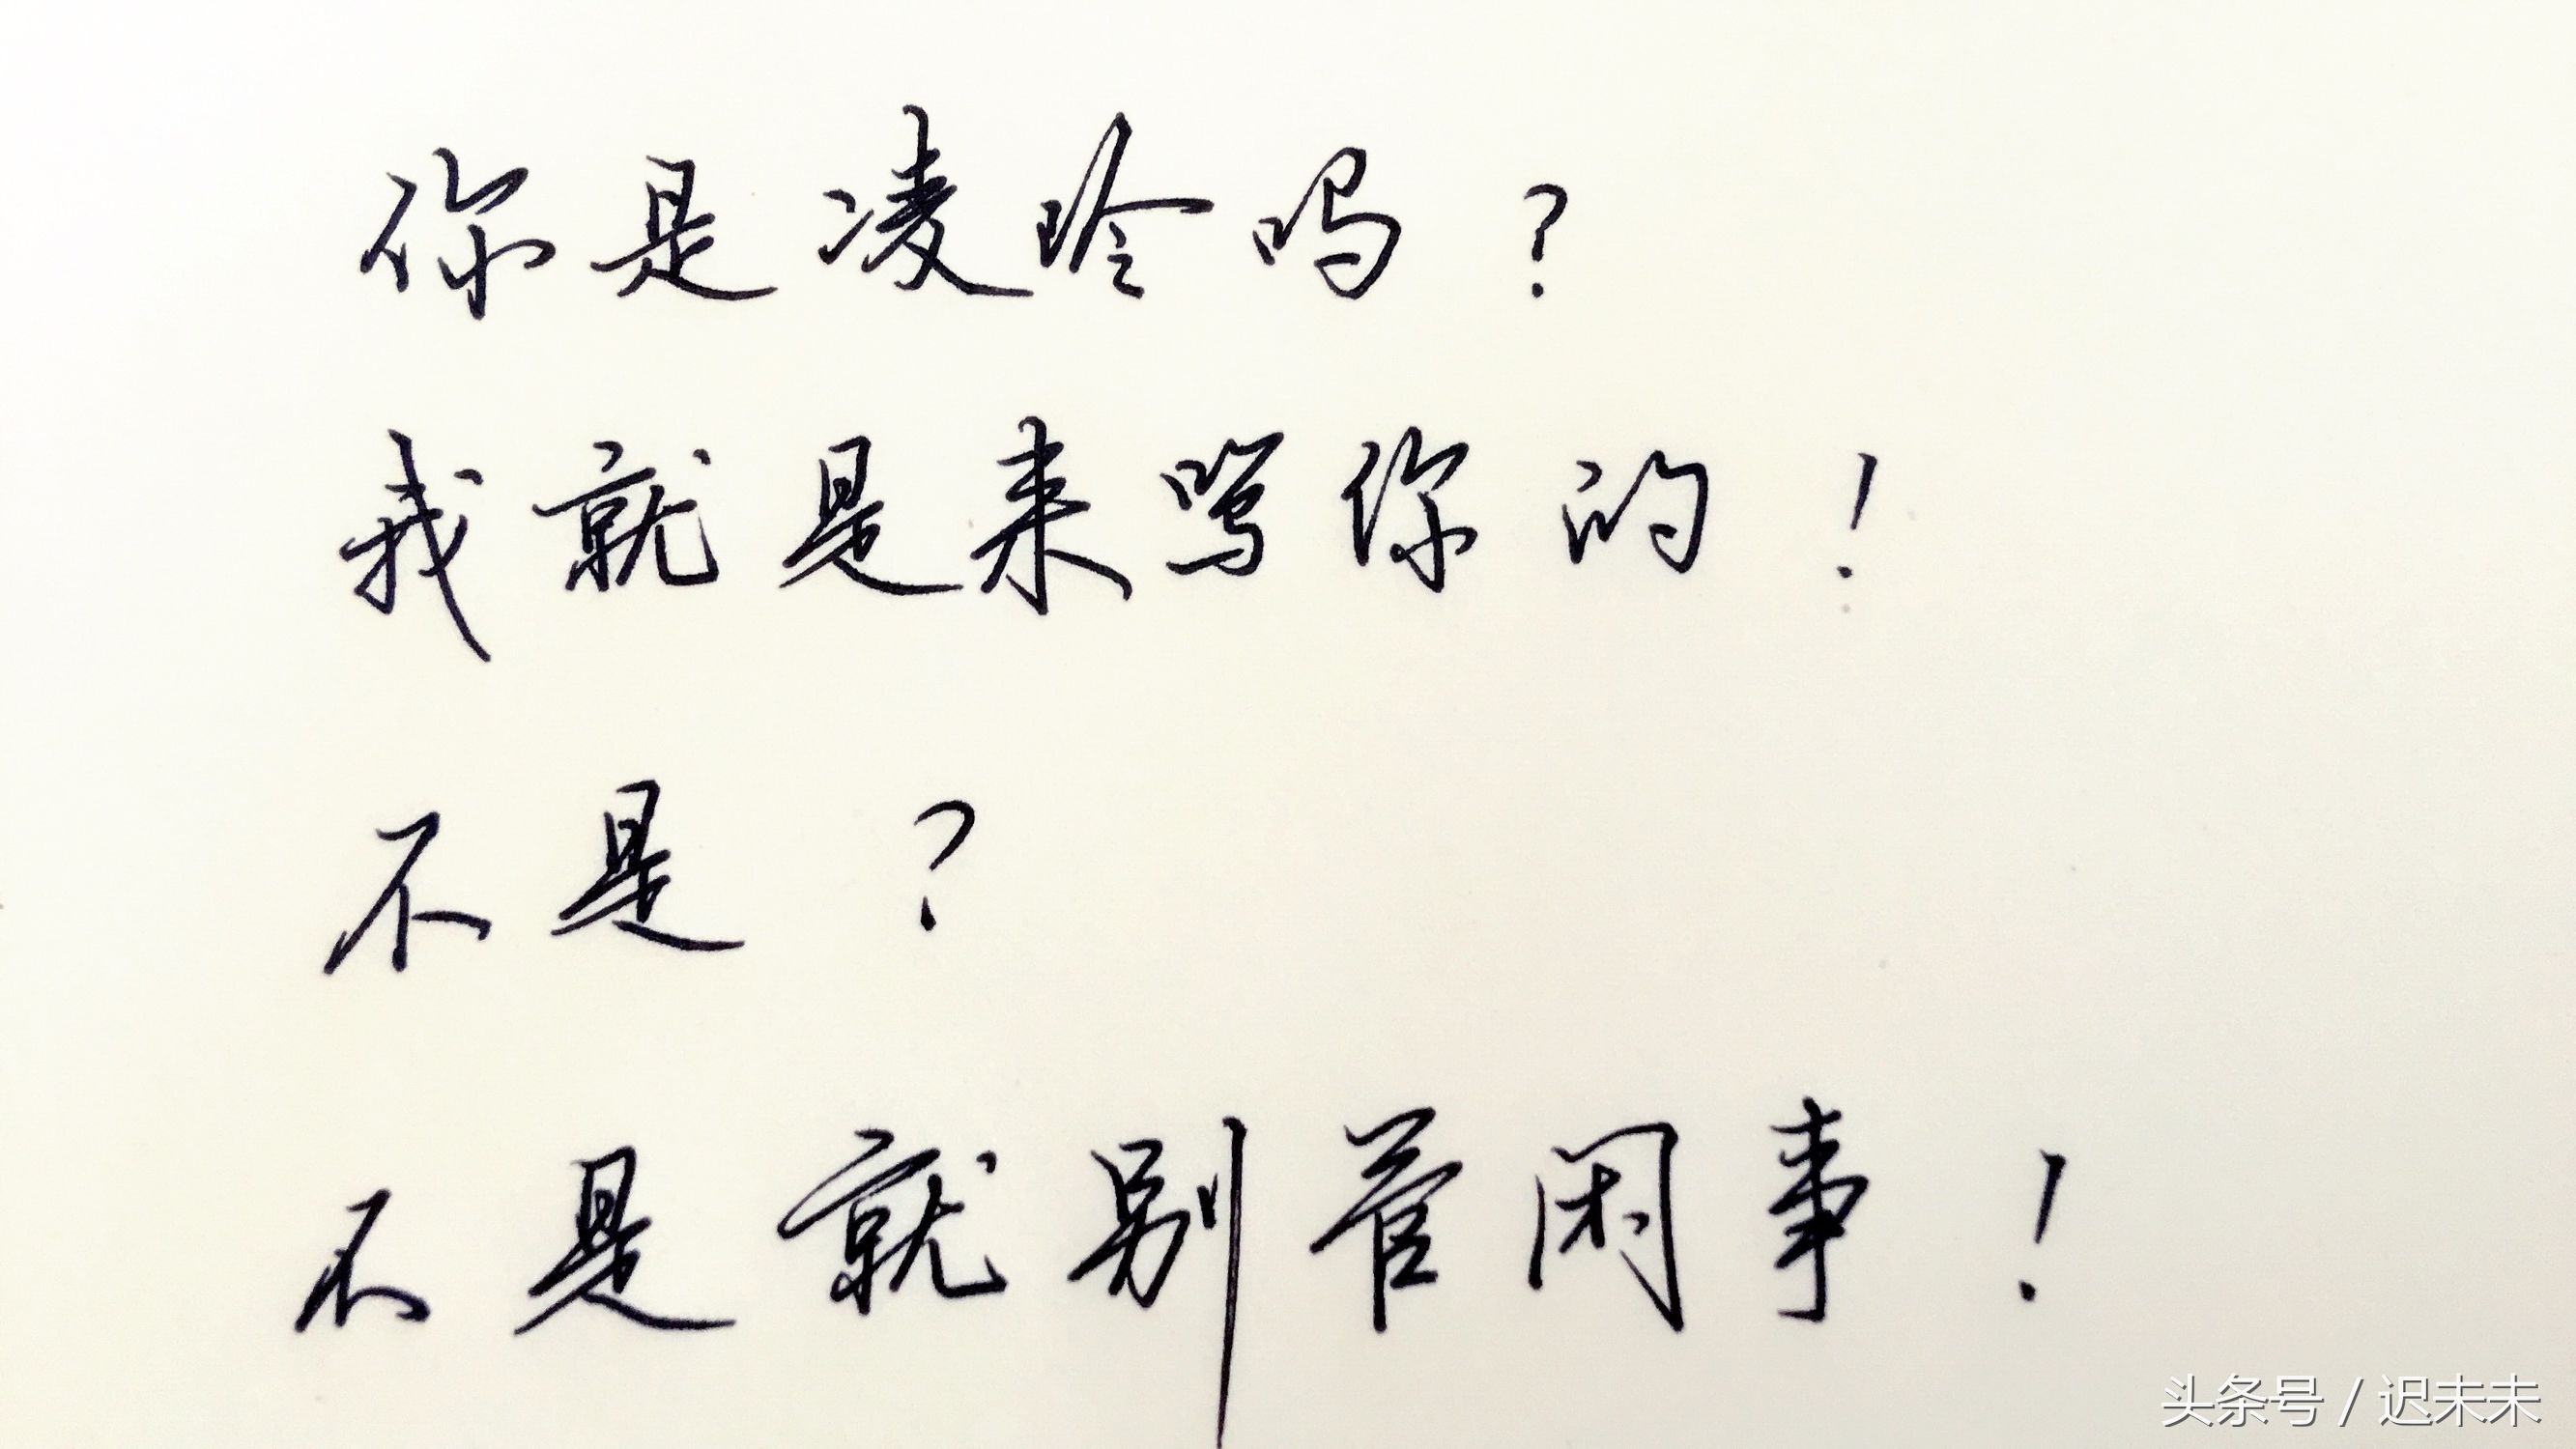 你是凌玲吗？
我就是来骂你的！
不是？
不是就别管闲事！
头条号 / 迟未未